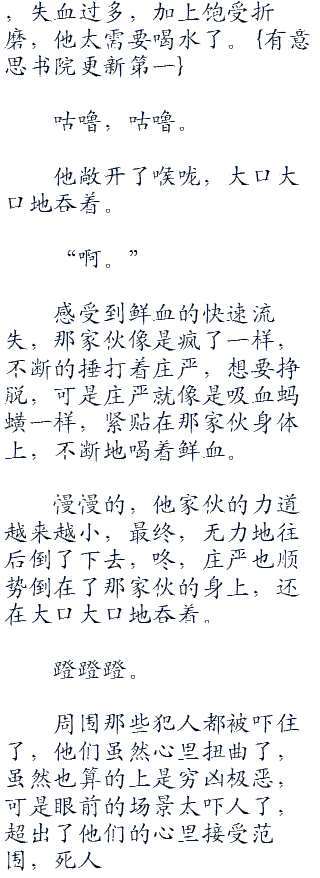 ，失血过多，加上饱受折
磨，他太需要喝水了。{有意
思书院更新第一}
咕噜，咕噜。
他敞开了喉咙，大口大
口地吞着。
“啊。”
感受到鲜血的快速流
失，那家伙像是疯了一样，
不断的捶打着庄严，想要挣
脱，可是庄严就像是吸血蚂
蟥一样，紧贴在那家伙身体
上，不断地喝着鲜血。
漫漫的，他家伙的力道
越来越小，最终，无力地往
后倒了下去，咚，庄严也顺
势倒在了那家伙的身上，还
在大口大口地吞着。
蹬蹬蹬。
周围那些犯人都被吓住
了，他们虽然心里扭曲了，
虽然也算的上是穷凶极恶，
可是眼前的场景太吓人了，
超出了他们的心里接受范
围，死人